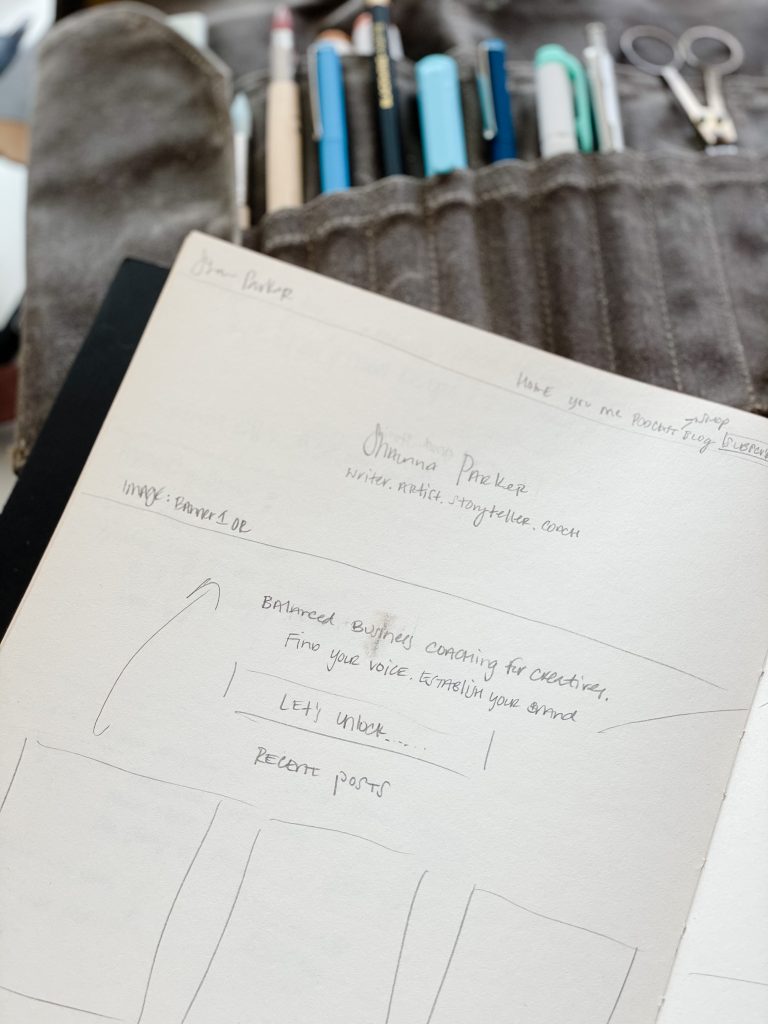 Parker
Home you me PODCAST Blog
shop
Shaunna Parker
writer. artist. storyteller. coach
image: Banner 1 or
Balanced Business coaching for creatives.
Find your voice. Establish your brand
Let's unlock.....
Recent posts